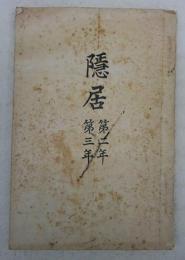 隱居
第二年
第三年